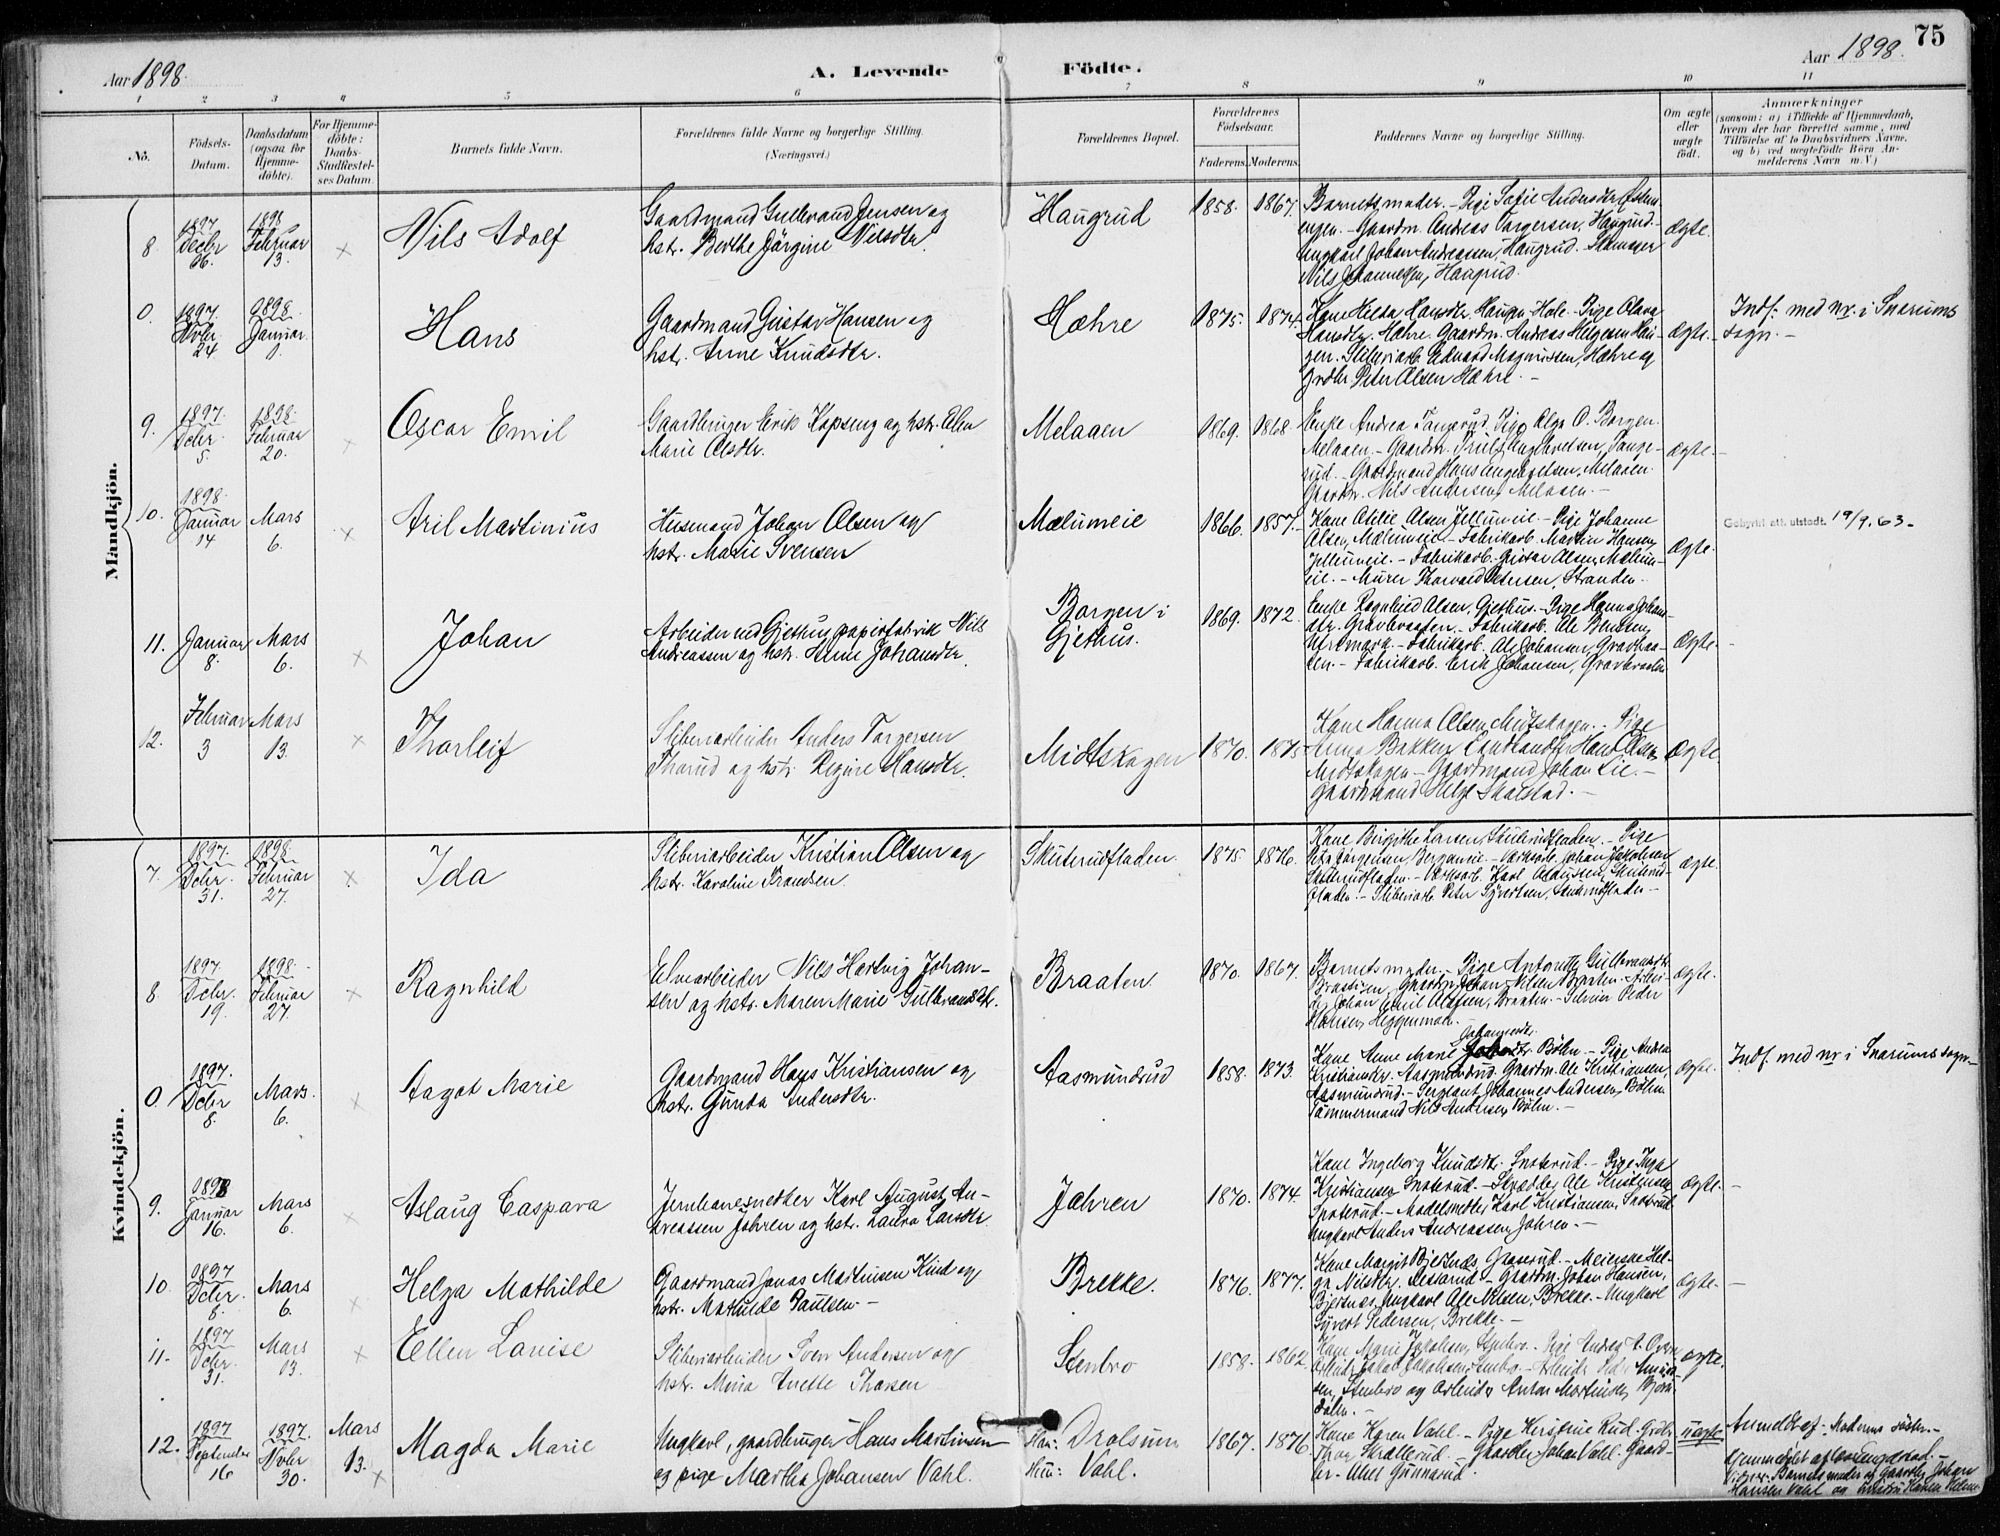 75
Aar 1898.
A. Levende Födte.
Aar 1898.
1 2 3 4 5 6 7 8 9 10 11
No.
Födsels-Datum.
Daabsdatum (ogsaa for Hjemme-döbte).
For Hjemme-döbte: Daabs-Stadfæstel-ses Datum.
Barnets fulde Navn.
Forældrenes fulde Navne og borgerlige Stilling.
(Næringsvei.)
Forældrenes Bopæl.
Forældrenes Födselsaar.
Faderens. Moderens.
Faddernes Navne og borgerlige Stilling.
Om ægte eller uægte födt.
Anmærkninger
(saasom: a) i Tilfælde af Hjemmedaab, hvem der har forrettet samme, med Tilföielse af to Daabsvidners Navne, og b) ved uægtefödte Börn An-melderens Navn m. V.)
Mandkjön.
8. 1897. Decbr 26. 1898 Februar 13. × Nils Adolf
Gaardmand Gulbrand Jensen og
hstr. Berthe Jörgine Nilsdtr.
Haugrud 1858. 1867.
Barnets moder. - Pige Sofie Andersdtr
Gaardm. Andreas Torgersen, Haugrud. -
Ungkarl Johan Andreassen, Haugrud.
Nils Johannessen, Haugrud.
ægte.
0. 1897. Novbr 24 1898. Januar Hans
Gaardmand Gustav Hansen og
hstr. Anne Knudsdtr.
Hæhre 1875. 1874.
Kone Helda Hansdtr. Haugen Hole. - Pige Olava
Hansdtr. Hæhre. Gaardm. Andreas Helgesen Hau-
gen. Sliberiarb. Edvard Magnussen, Hæhre og
Peter Olsen Hæhre. -
ægte. -
Indf. med nr. i Snarums
sogn. -
9. 1897. Dcbr. 5. 1898. Februar 20. × Oscar Emil
Gaardbruger Erik Kopseng og hstr. Elen
Marie Olsdtr.
Melaaen 1869. 1868.
Enke Andrea Tangerud. Pige Olga O. Borgen
Melaaen. - Gaardm. Truls Tange-
rud. - Gaardmand Hans Engebretsen, Melaaen.
Gaardbr. Nils Andersen, Melaaen. -
ægte. -
10. 1898. Januar 14 Mars 6. × Aril Martinius
Husmand Johan Olsen og
hstr. Marie Svensen
Mælumeie 1866. 1857. -
Kone Otilie Olsen Jellumeie. - Pige Johanne
Olsen, Mælumeie. - Fabrikarb. Martin Hansen,
Jellumeie. - Fabrikarb. Gustav Olsen, Mælum-
eie. - Murer Thorvald Petersen, Stranden. -
ægte.
Gebyrfri att. utstedt. 19/9. 63. -
11. Januar 8. Mars 6. × Johan
Arbeider ved Gjethus papirfabrik Nils
Andreassen og hstr. Anne Johansdtr.
Borgen i
Gjethus. 1869. 1872.
Enke Ragnhild Olsen, Gjethus. - Pige Hanna Johans-
dtr. Gravbraaten. - Fabrikarb. Ole Bentsen,
Fabrikarb. Ole Johansen, Gravbraa-
ten. - Fabrikarb. Erik Johansen, Gravbraaten
Ægte. -
12. Februar 3 Mars 13. × Thorleif
Sliberiarbeider Anders Torgersen
Thorud og hstr. Regine Hansdtr.
Midtskogen 1870. 1875
Kone Hanna Olsen, Midtskogen. - Pige
Anna Bakken, Hans Olsen
Midtskogen - Gaardmand Johan Lie. -
Gaardmand Helge Skalstad. -
Ægte.
Kvindekjön.
7. 1897. Dcbr. 31. 1898. Februar 27. × Ida
Sliberiarbeider Kristian Olsen og
hstr. Karoline Trondsen.
Skuterudfladen. 1875. 1876.
Kone Birgithe Larsen, Skuterudfladen. - Pige
Jörgensen, Bergameie. - Værksarb. Johan Jakobsen
Skuterudfladen. - Værksarb. Karl Skuterud-
fladen. - Sliberiarb. Peter Syvertsen, Skuterudfladen -
ægte.
8. 1897. Dcbr. 19. 1898. Februar 27. × Ragnhild
Elvearbeider Nils Hartvig Johan-
sen og hstr. Maren Marie Gulbrandsdtr.
Braaten 1870. 1867.
Barnets moder. - Pige Antonette Gulbrandsdtr.
Braaten, Gaardm. Johan Nilsen Braaten. - Arbei-
der Johan Emil Olafsen, Braaten. - Peder
Hansen, Heggenmoen. -
ægte.
0. 1897. Dcbr 8. Mars. 6. × Aagot Marie
Gaardmand Hans Kristiansen og
hstr. Gunda Andersdtr.
Aasmundrud 1858. 1873.
Johannesdtr.
Kone Anne Marie Bölen. - Pige Andrea
Kristiansdtr. Aasmundrud. Gaardm. Ole Kristiansen,
Aasmundrud. - Sergeant Johannes Andersen, Bölen.
Tömmermand Nils Andersen, Bölen. -
ægte. -
Indf. med nr. i Snarums sogn. -
9. 1898 Januar 16. Mars 6. × Aslaug Caspara
Jernbanesnedker Karl August An-
dreassen Johren og hstr. Laura Larsdtr.
Johren 1870. 1874.
Kone Ingeborg Knudsdtr. Snoterud. - Pige Inga
Kristiansen, Snoterud. - Skrædder Ole Kristiansen
Snoterud. - Modelsnedker Karl Kristiansen, Snoterud
Ungkarl Anders Andreassen, Johren. -
ægte. -
10. 1897 Dcbr. 8. Mars 6. × Helga Mathilde
Gaardmand Jonas Martinsen Kind og
hstr. Mathilde Paulsen. -
Brekke. 1876. 1877.
Kone Margit Bjertnæs, - Meierske Hel-
ga Nilsdtr. - Gaardm. Johan Hansen,
Bjertnæs, Ungkarl Ole Nilsen, Brekke. - Ungkarl
Syvert Pedersen, Brekke. -
ægte. -
11. 1897 Dcbr. 31. Mars 13. × Ellen Lovise
Sliberiarbeider Sven Andersen og
hstr. Mina Anette Thorsen
Stenbro 1858. 1862.
Kone Marie Jakobsen, Stenbro. - Pige Andrea
Arbeider Jakob Jakobsen, Stenbro. - Arbeider
Stenbro og Arbeider Anton Martinsen,
ægte.
12. 1897 September 16 1897. Novbr 30. Mars 13. × Magda Marie
Ungkarl, gaardbruger Hans Martinsen
og pige Martha Johansen Vahl.
Han: Drolsum
Hun: Vahl. 1867. 1876
Kone Karen Vahl. - Pige Kirstine Rud.
Thor Skallerud. Gaardbr. Johan Vahl. Gaard-
br. Gunnerud.
uægte
Anmeldt af Moderens söster. -
Hjemmedöbt af
Vidner: Barnets moder og gaardbr. Johan
Hansen Vahl og